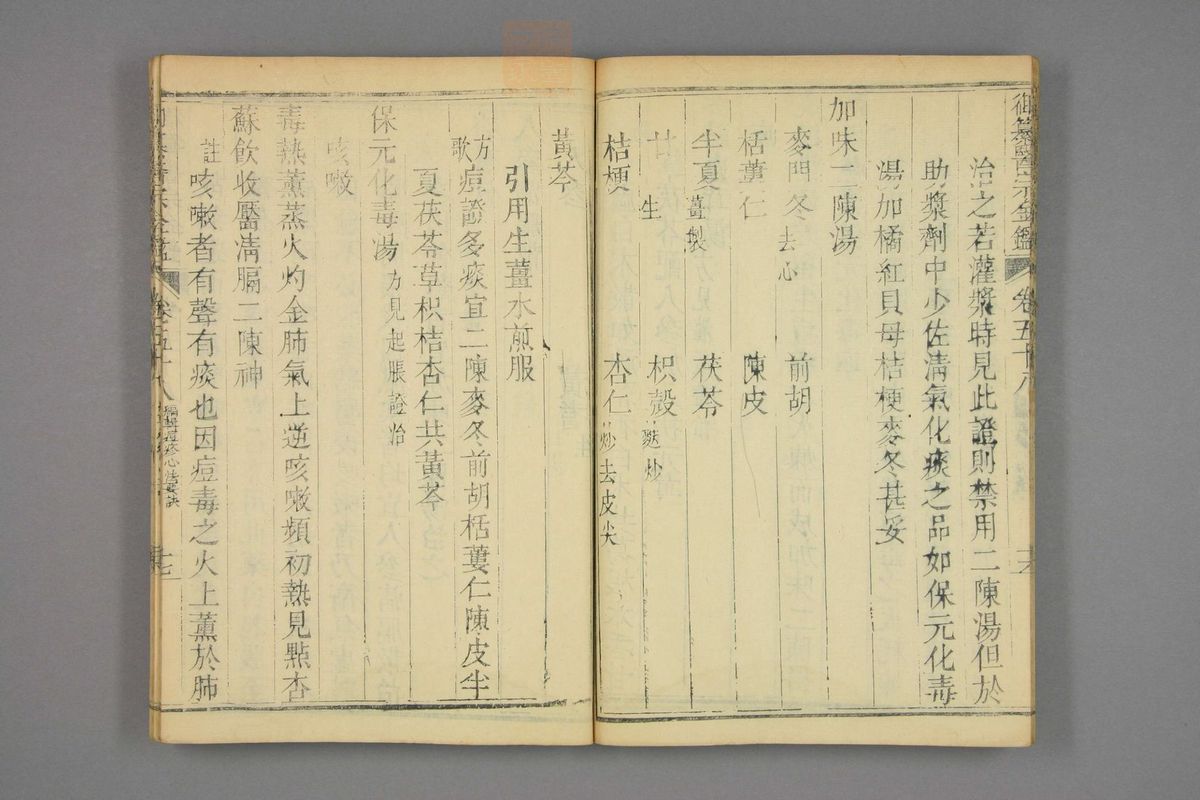 御纂醫宗金鑑 卷五十八
治之若灌漿時見此證則禁用二陳湯但於
助漿劑中少佐淸氣化痰之品如保元化毒
湯加橘紅貝母桔梗麥冬甚妥
加味二陳湯
麥門冬去心 前胡
栝蔞仁 陳皮
半夏薑製 茯苓
甘生 枳殼麩炒
桔梗 杏仁炒去皮尖
黃芩
引用生薑水煎服
方歌 痘證多痰宜二陳麥冬前胡栝蔞仁陳皮半
夏茯苓草枳桔杏仁共黃芩
保元化毒湯方見起脹證治
咳嗽
毒熱薰蒸火灼金肺氣上逆咳嗽頻初熱見點杏
蘇飲收靨淸膈二陳神
註 咳嗽者有聲有痰也因痘毒之火上薰於肺
卷五十八 編輯痘疹心法要訣 十七